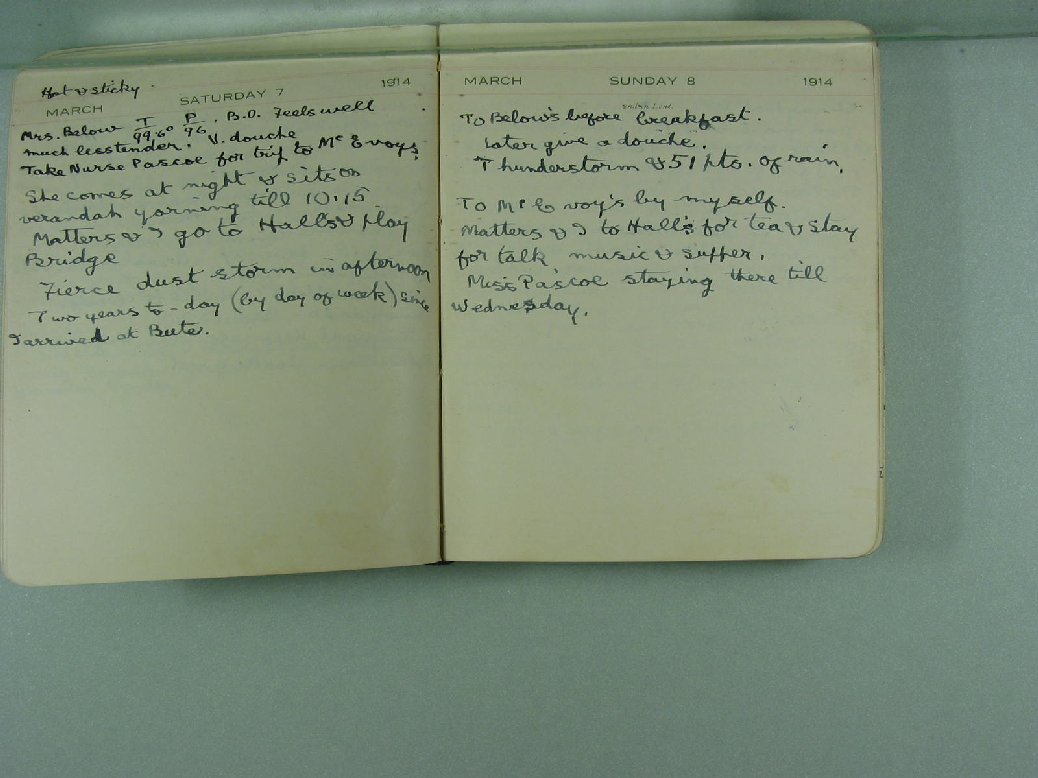 Hot & sticky.
MARCH SATURDAY 7 1914
Mrs. Below T 99.6° P 96. B.O. Feels well
much less tender. V. douche
Take Nurse Pascoe for trip to McEvoys.
She comes at night & sits on
verandah yarning till 10.15
Matters & I go to Halls & play
Bridge
Fierce dust storm in afternoon
Two years to-day (by day of week) since
I arrived at Bute.
MARCH SUNDAY 8 1914
To Below's before breakfast.
Later give a douche.
Thunderstorm & 51 pts. of rain.
To McEvoy's by myself.
Matters & I to Hall's for tea & stay
for talk music & supper.
Miss Pascoe staying there till
Wednesday.